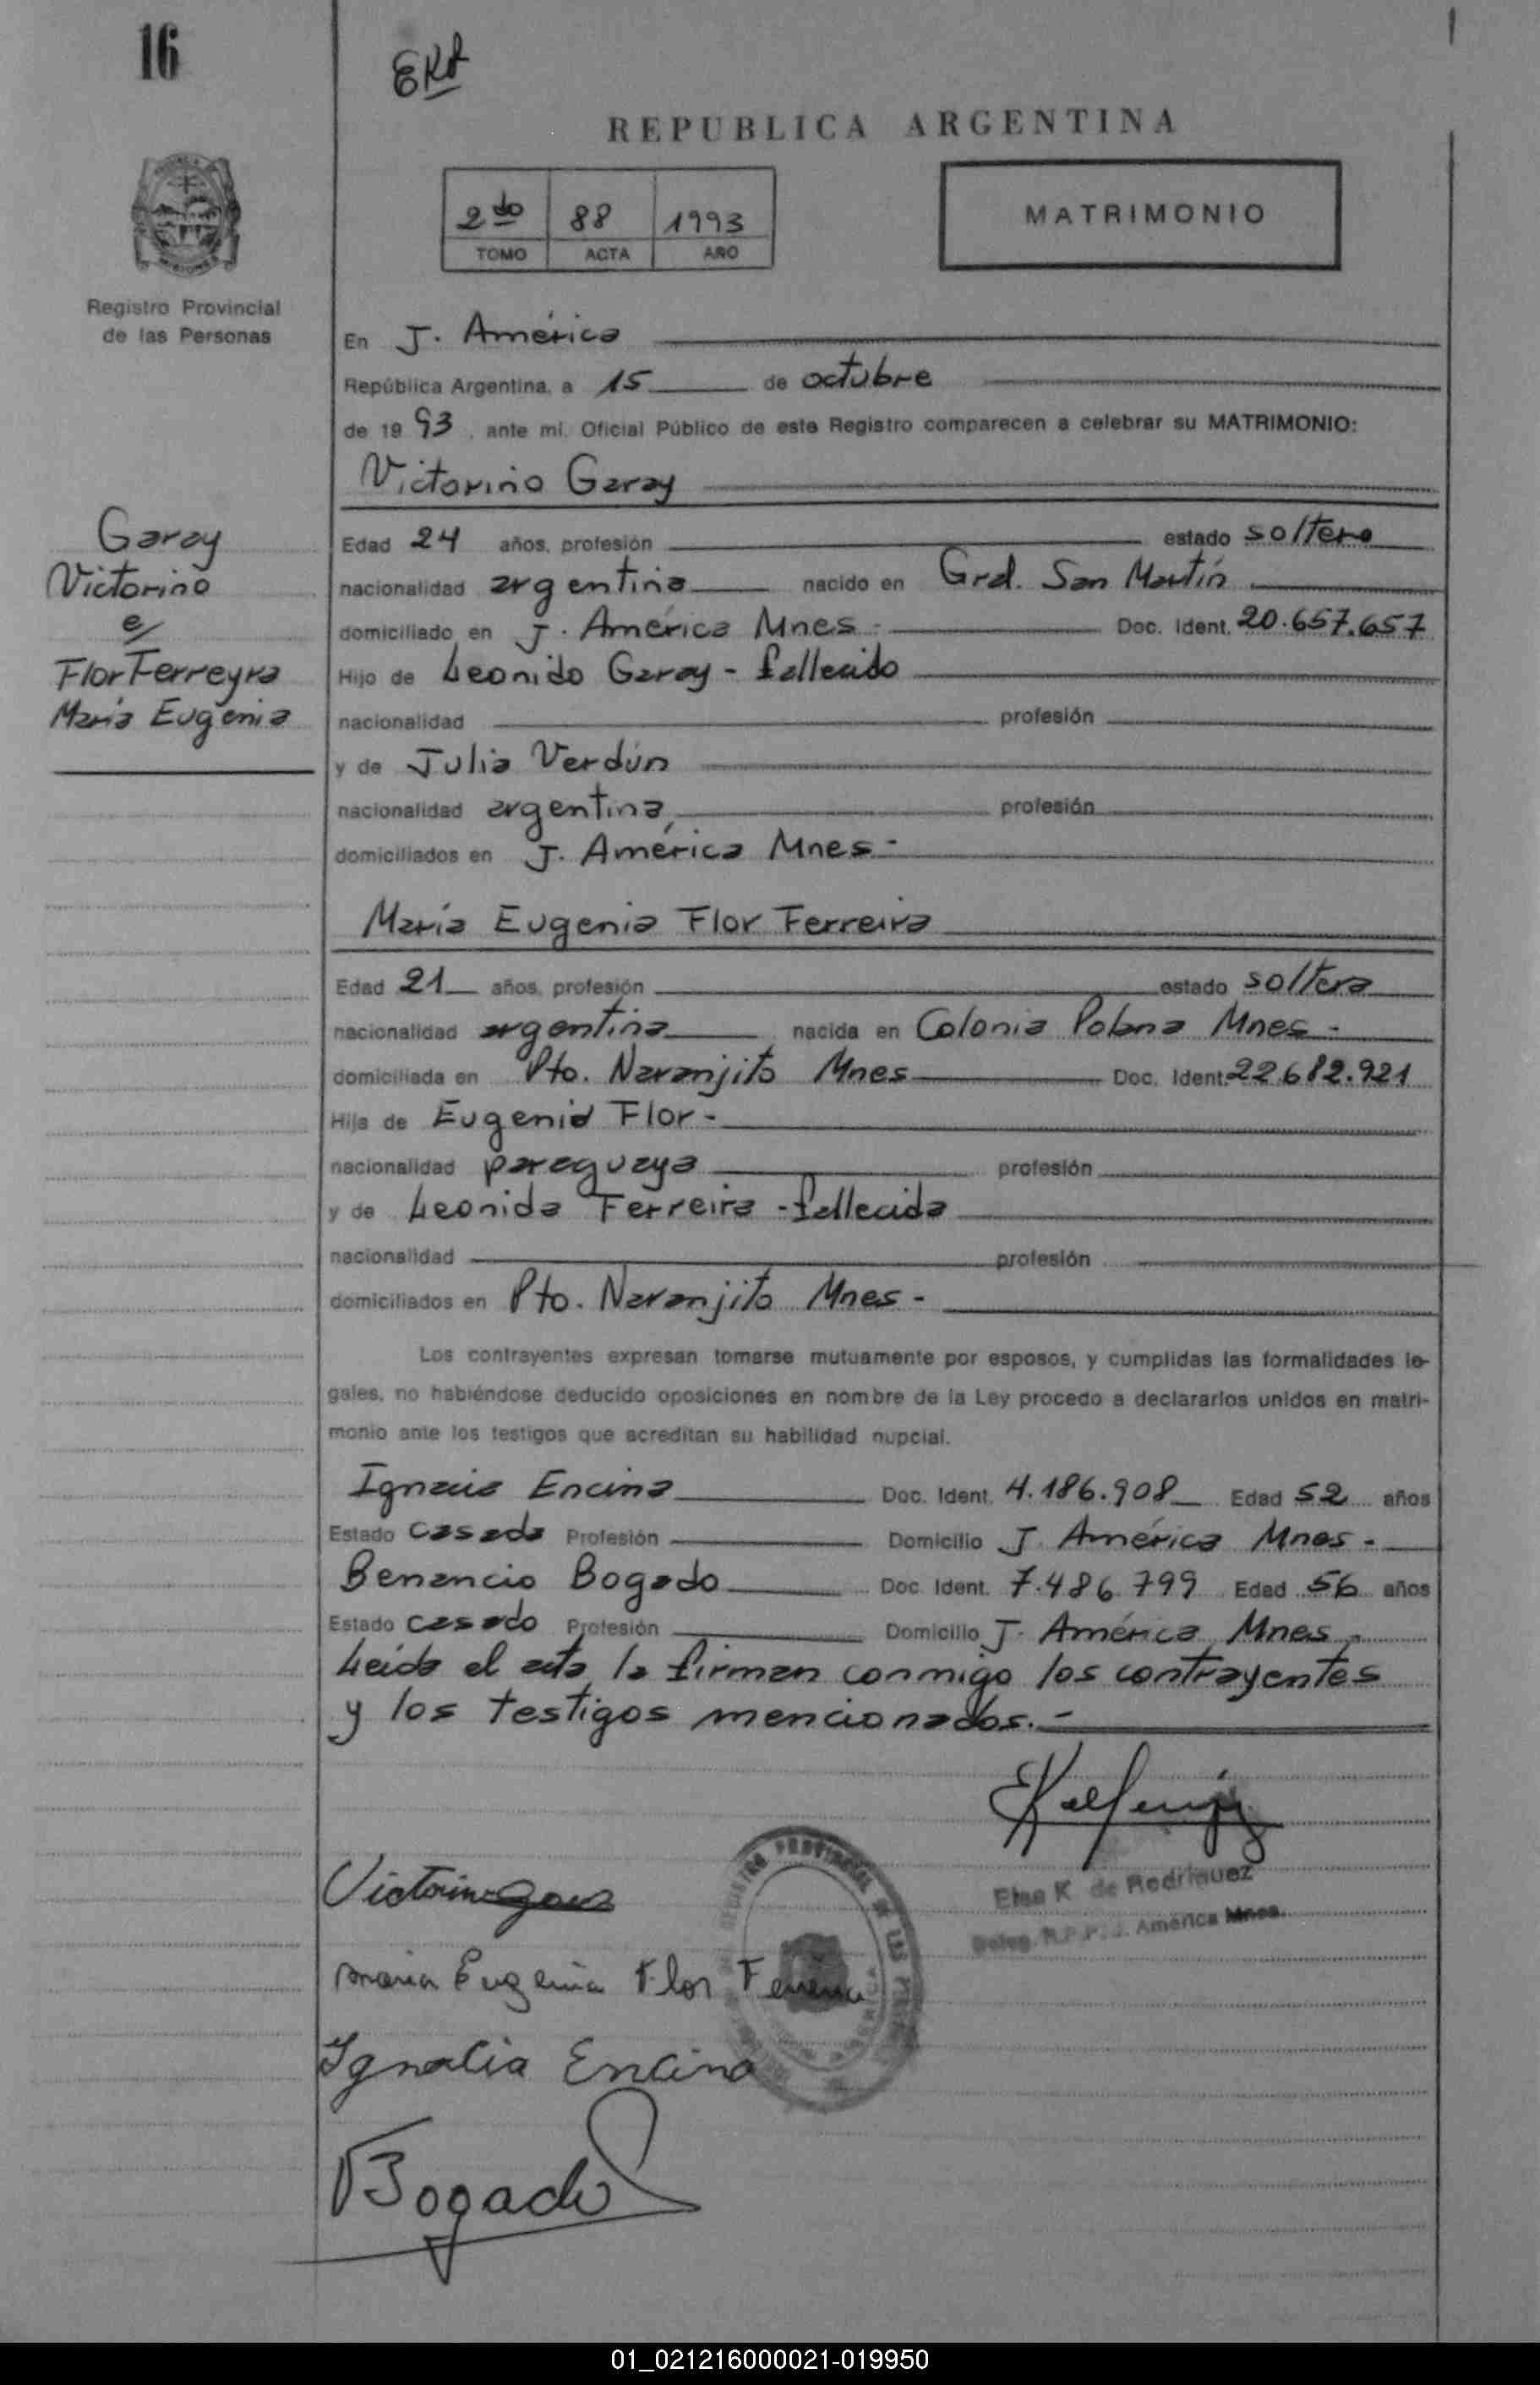 16
EKR
REPUBLICA ARGENTINA
2do 88 1993
TOMO ACTA AÑO
MATRIMONIO
Registro Provincial
de las Personas
En J. América
República Argentina, a 15 de octubre
de 1993, ante mí, Oficial Público de este Registro comparecen a celebrar su MATRIMONIO:
Victorino Garay
Garay
Victorino
c/
Flor Ferreyra
María Eugenia
Edad 24 años, profesión estado soltero
nacionalidad argentina nacido en Gral. San Martín
domiciliado en J. América Mnes - Doc. Ident. 20.657.657
Hijo de Leonido Garay - fallecido
nacionalidad profesión
y de Julia Verdún
nacionalidad argentina, profesión
domiciliados en J. América Mnes -
María Eugenia Flor Ferreira
Edad 21 años, profesión estado soltera
nacionalidad argentina nacida en Colonia Polana Mnes -
domiciliada en Pto. Naranjito Mnes Doc. Ident. 22.682.921
Hija de Eugenio Flor -
nacionalidad paraguaya profesión
y de Leonida Ferreira - fallecida
nacionalidad profesión
domiciliados en Pto. Naranjito Mnes -
Los contrayentes expresan tomarse mutuamente por esposos, y cumplidas las formalidades le-
gales, no habiéndose deducido oposiciones en nombre de la Ley procedo a declararlos unidos en matri-
monio ante los testigos que acreditan su habilidad nupcial.
Ignacia Encina Doc. Ident. 4.186.908 Edad 52 años
Estado casada Profesión Domicilio J. América Mnes -
Benancio Bogado Doc. Ident. 7.486.799 Edad 56 años
Estado casado Profesión Domicilio J. América, Mnes -
Leída el acta la firman conmigo los contrayentes
y los testigos mencionados. -
Elsa K. de Rodriguez
Deleg. R.P.P. J. América Mnes.
REGISTRO PROVINCIAL DE LAS
Victorino
Maria Eugenia Flor Ferreira
Ignacia Encina
Bogado
01_021216000021-019950